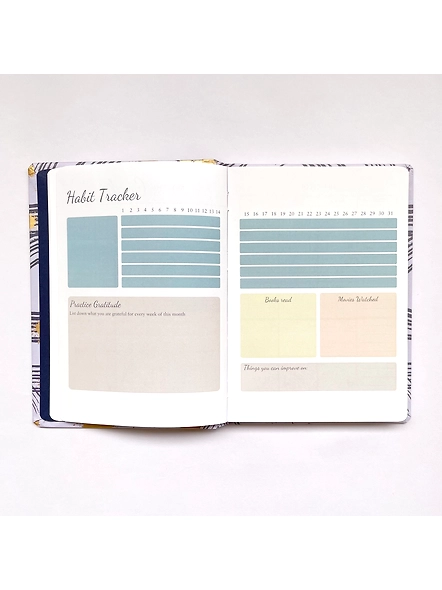 Habit Tracker
1 2 3 4 5 6 7 8 9 10 11 12 13 14
15 16 17 18 19 20 21 22 23 24 25 26 27 28 29 30 31
Practice Gratitude
List down what you are grateful for every week of this month
Books read
Movies Watched
Things you can improve on